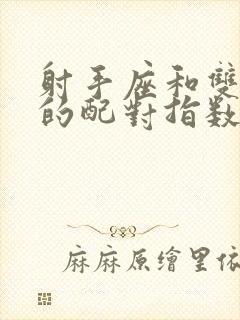 射手座和雙
的配對指数
麻麻原繪里依